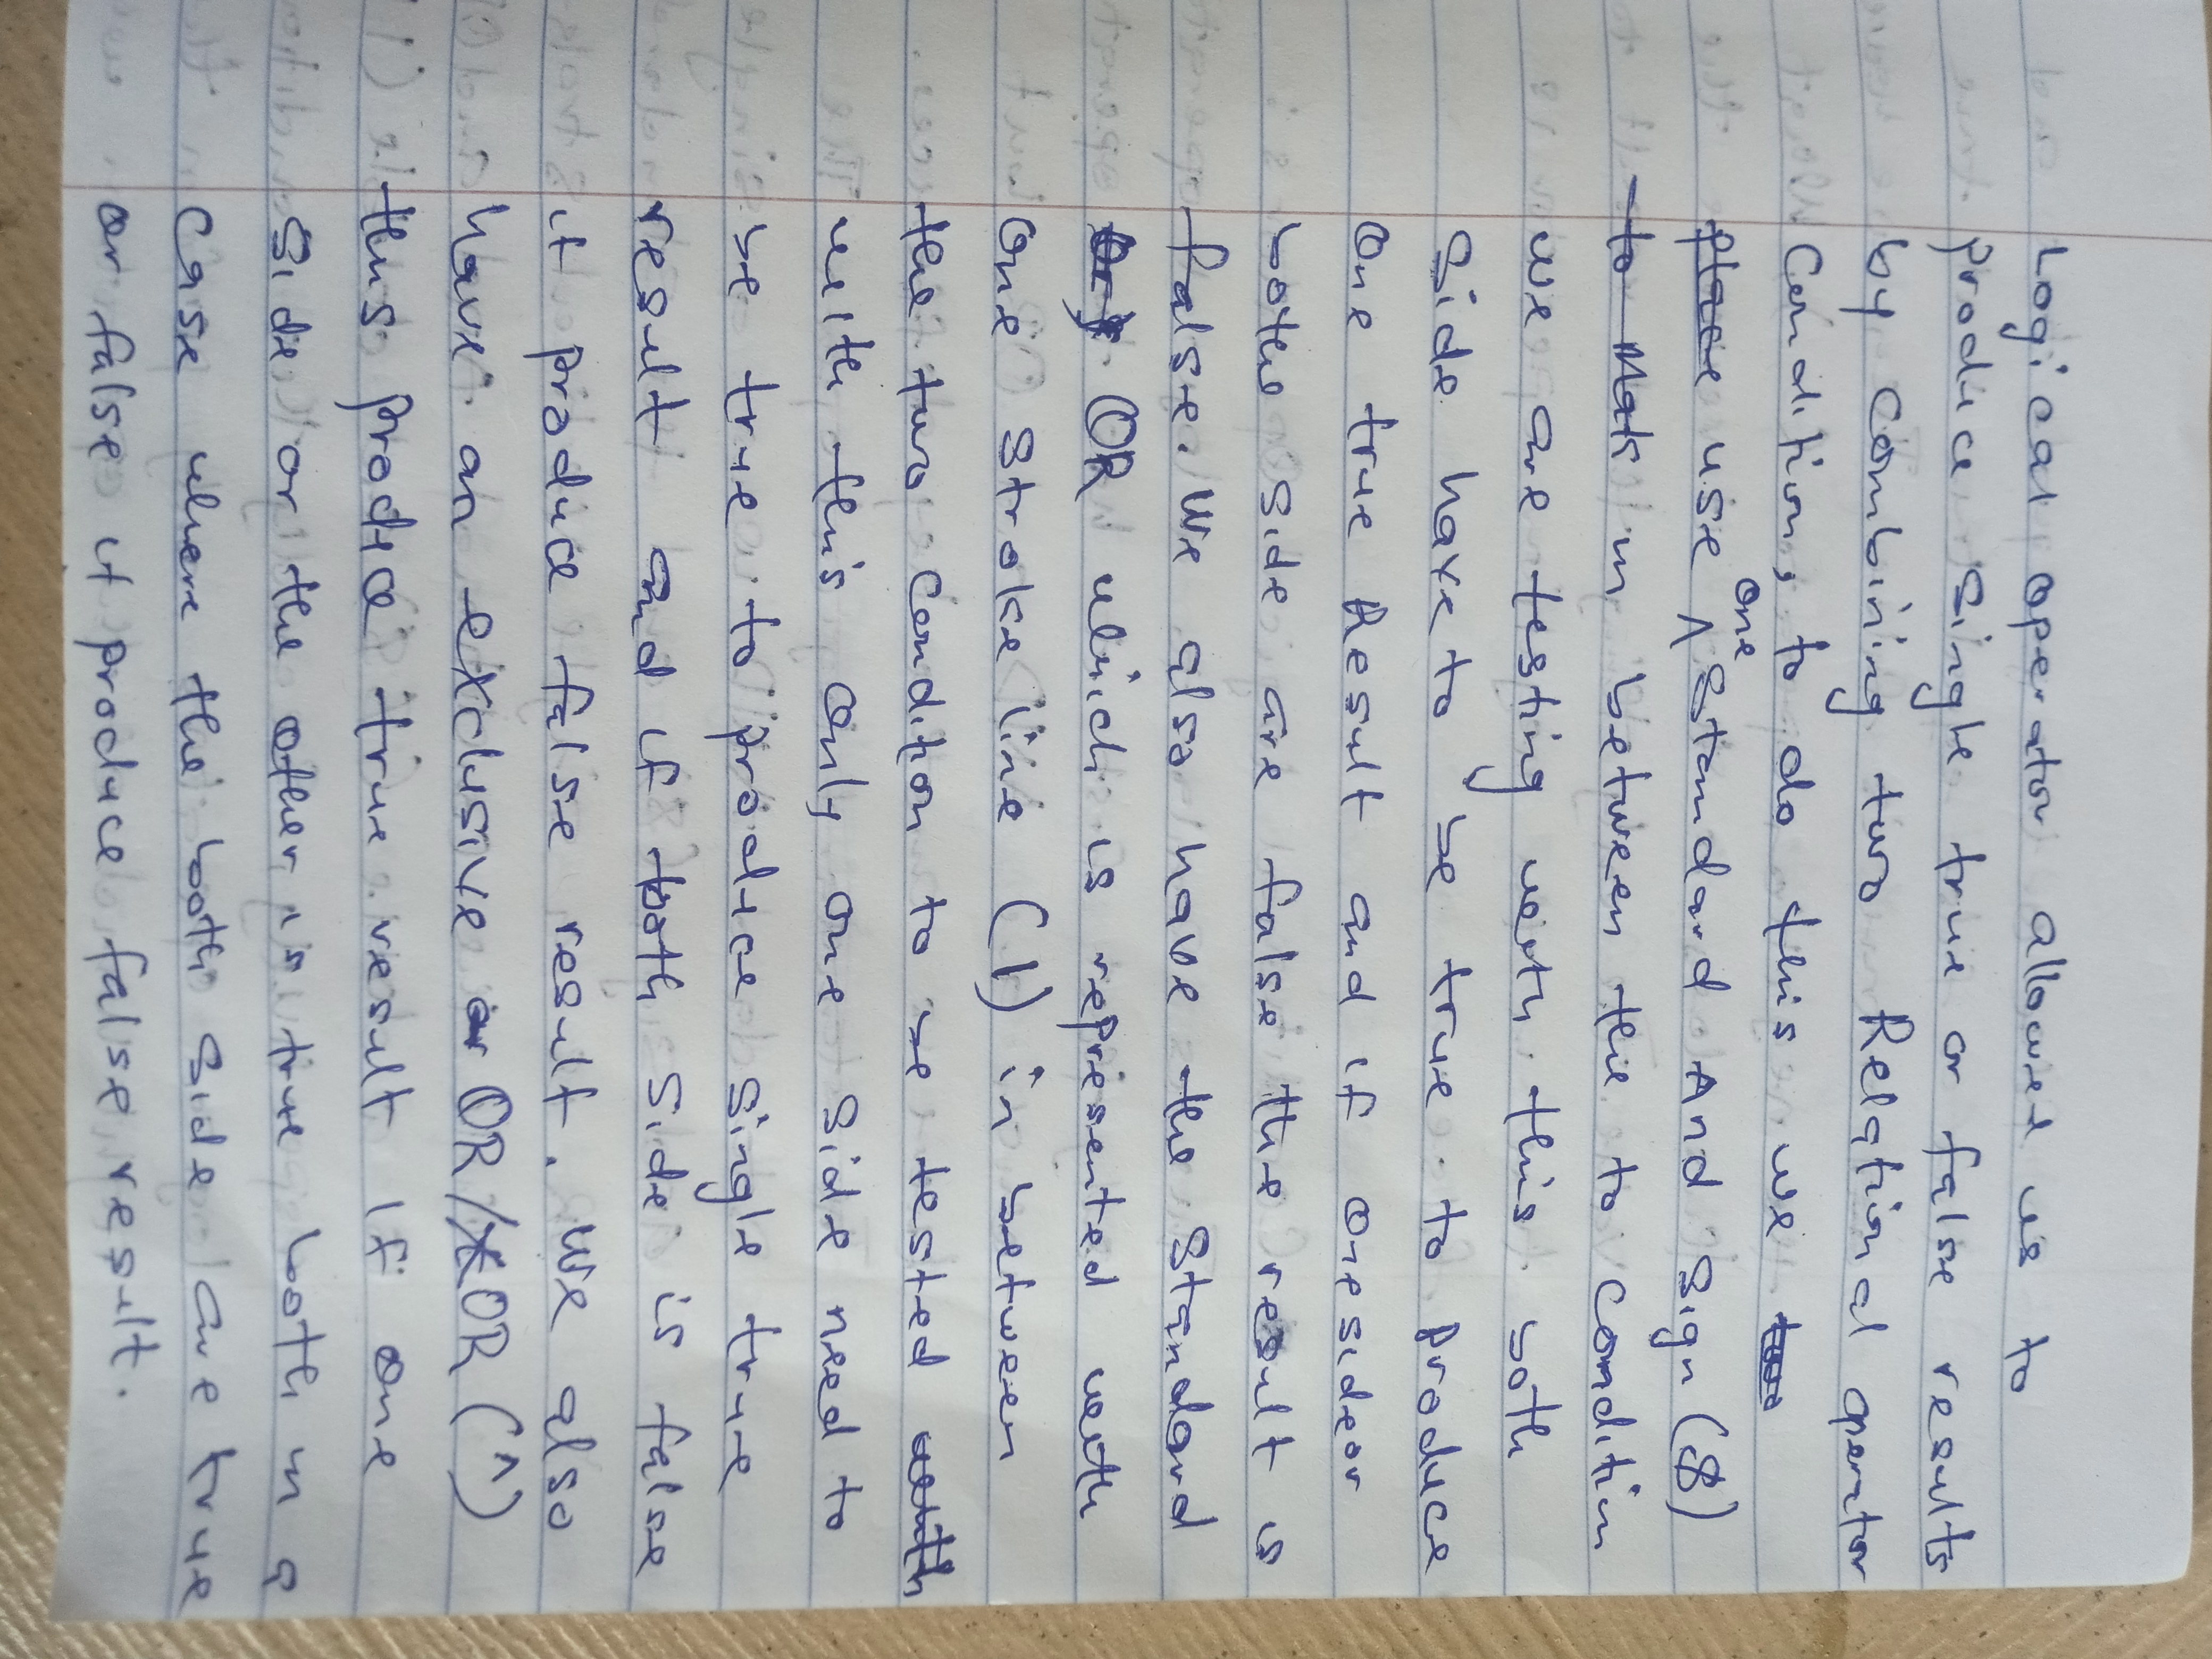 Logical operator allowed us to
produce single true or false results
by combining two Relational operator
Conditions, to do this we
use one ^ Standard And sign (&)
in between the to condition
we are testing with this both
side have to be true to produce
one true Result and if one side or
both side are false the result is
false. We also have the Standard
OR which is represented with
One stroke line (|) in between
the two condition to be tested
with this only one side need to
be true to produce single true
result and if both side is false
it produce false result. We also
have an exclusive OR/XOR (^)
this produce true result if one
side or the other is true both in a
case where the both side are true
or false it produce false result.